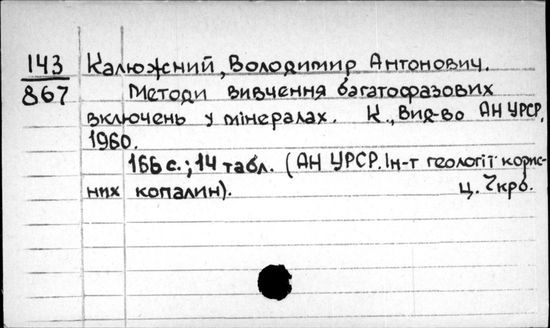 143
867
Калюжний, Володимир Антонович.
Методи вивчення багатофазових
включень у мінералах. К., Вид-во АН УРСР,
1960.
166 с.; 14 табл. (АН УРСР. Ін-т геології корис-
них копалин). Ц. 7крб.